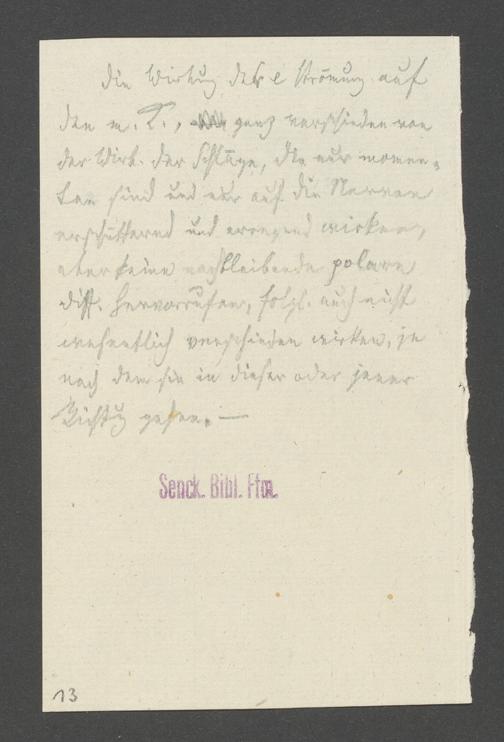 Die Wirkung der e Strömung auf
den m. K., ganz verschieden von
der Wirk. der Schläge, die nur momen-
tan sind und nur auf die Nerven
erschütternd und erregend wirken,
aber keine nachbleibende polare
Diff. hervorrufen, folgl. auch nicht
wesentlich verschieden wirken, je
nach dem sie in dieser oder jener
Richtg gehen. —
Senck. Bibl. Ffm.
13